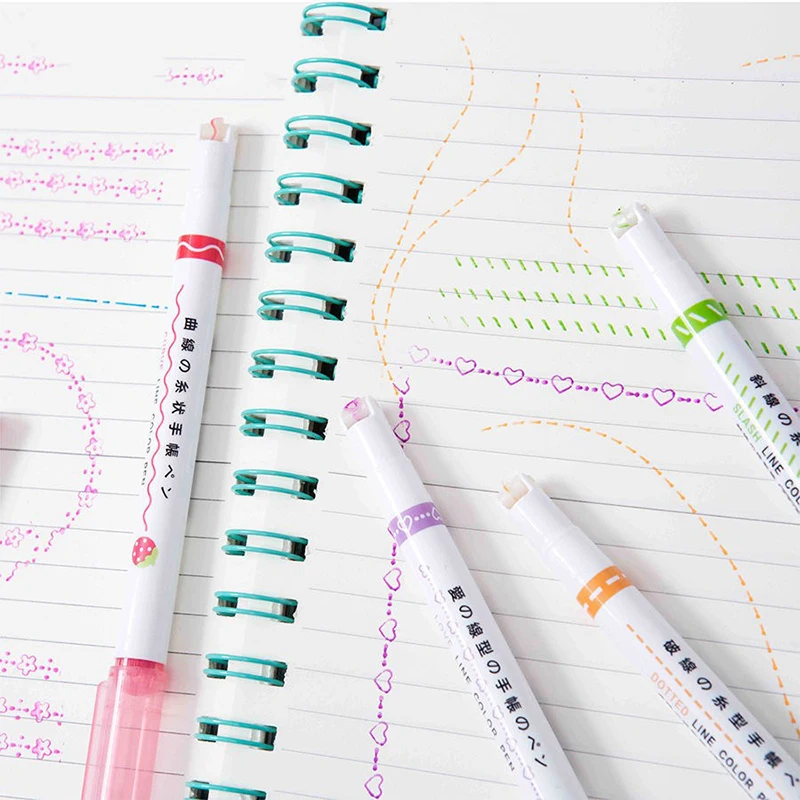 曲線の糸状手帳ペン
LINE COLOR PEN
愛の線型の手帳のペン
LINE COLOR PEN
破線の糸型手帳ペ
DOTTED LINE COLOR P
斜線の糸
SLASH LINE COLO